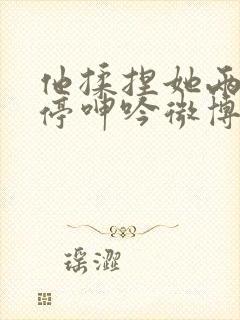 他揉捏她两
停呻吟微博
瑶澀